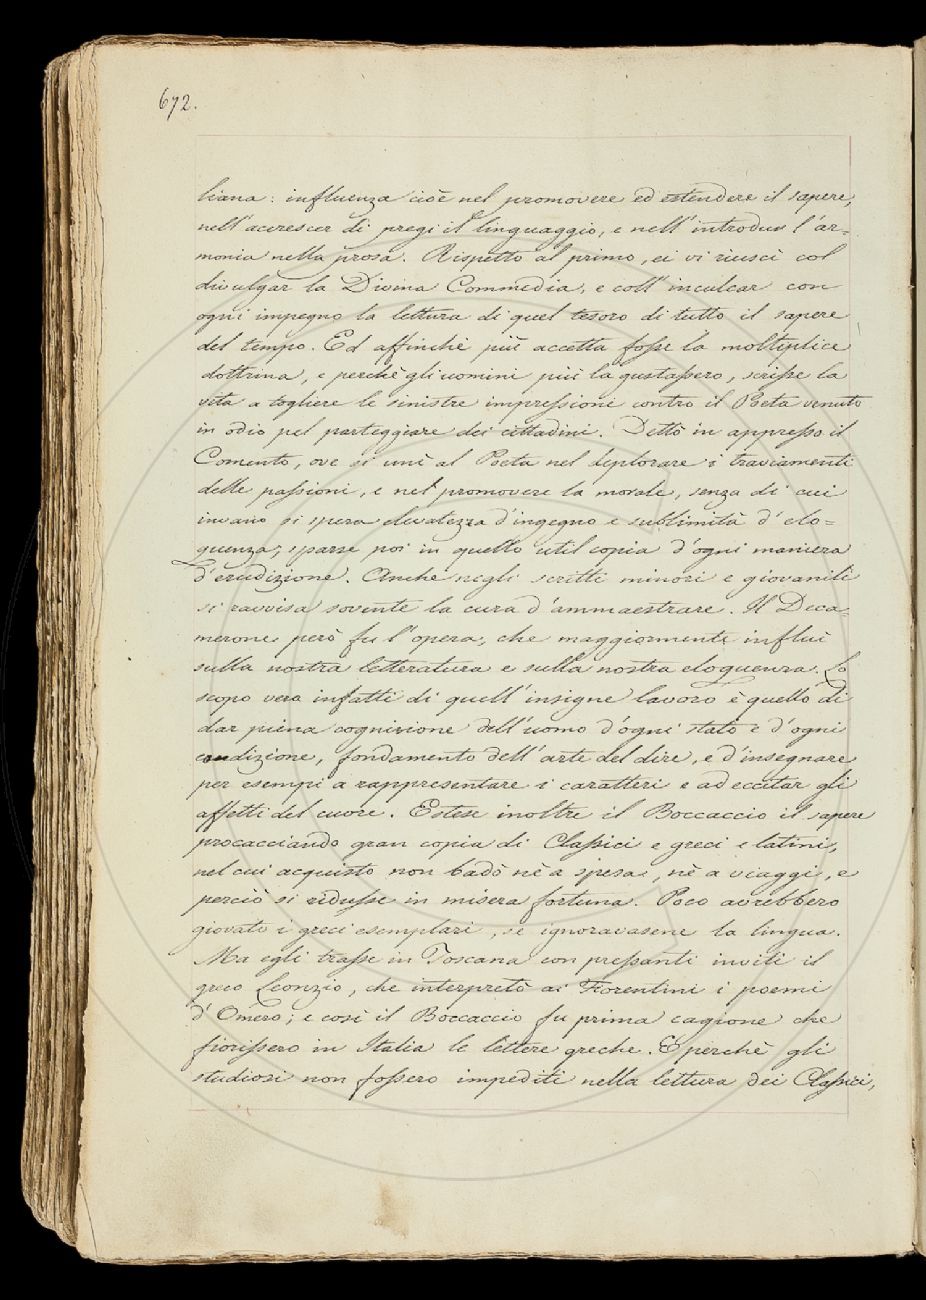 672.
liana: influenza cioè nel promovere ed estendere il sapere,
nell'accrescer di pregi il linguaggio, e nell'introdur l'ar=
monia nella prosa. Rispetto al primo, ei vi riuscì col
divulgar la Divina Commedia, e coll'inculcar con
ogni impegno la lettura di quel tesoro di tutto il sapere
del tempo. Ed affinchè più accetta fosse la moltiplice
dottrina, e perchè gli uomini più la gustassero, scrisse la
vita a togliere le sinistre impressioni contro il Poeta venuto
in odio pel parteggiare dei cittadini. Dettò in appresso il
Comento, ove si unì al Poeta nel deplorare i traviamenti
delle passioni, e nel promovere la morale, senza di cui
invano si spera elevatezza d'ingegno e sublimità d'elo=
quenza; sparse poi in quello util copia d'ogni maniera
d'erudizione. Anche negli scritti minori e giovanili
si ravvisa sovente la cura d'ammaestrare. Il Deca=
merone però fu l'opera, che maggiormente influì
sulla nostra letteratura e sulla nostra eloquenza. Lo
scopo vero infatti di quell'insigne lavoro è quello di
dar piena cognizione dell'uomo d'ogni stato e d'ogni
condizione, fondamento dell'arte del dire, e d'insegnare
per esempi a rappresentare i caratteri e ad eccitar gli
affetti del cuore. Estese inoltre il Boccaccio il sapere
procacciando gran copia di Classici e greci e latini,
nel cui acquisto non badò nè a spesa, nè a viaggi, e
perciò si ridusse in misera fortuna. Poco avrebbero
giovato i greci esemplari, se ignoravasene la lingua.
Ma egli trasse in Toscana con pressanti inviti il
greco Leonzio, che interpretò ai Fiorentini i poemi
d'Omero; e così il Boccaccio fu prima cagione che
fiorissero in Italia le lettere greche. E perchè gli
studiosi non fossero impediti nella lettura dei Classici,